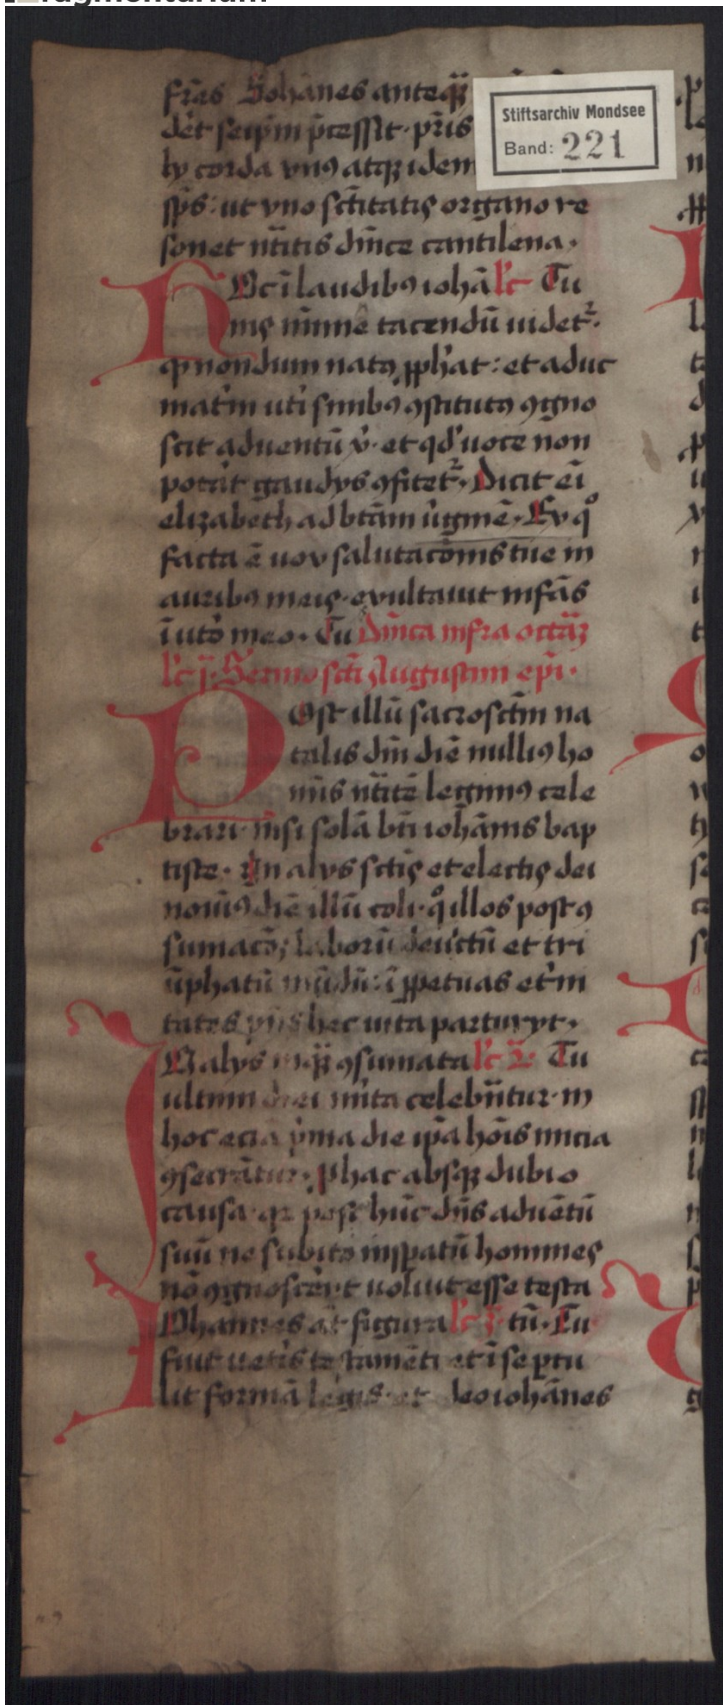 fragmentarium
Stiftsarchiv Mondsee
Band: 221
frēs Iohānes anteq̄
dēt seip̄m p̄cessit · p̄ris
ly corda vnꝰ atqꝫ idem
sp̄s: ut vno sc̄titatis organo re
sonet n̄titis dn̄ice cantilena ·
Hec ī laudibꝰ iohā lc̄ Tu
nīe tacendū uidetᷣ ·
qꝛ nondum natꝰ ꝓphat: et aduc
mat̄m uti sinibꝰ ꝯstitutꝰ ꝯgno
scit aduentū ... et qd uoce non
potat gaudijs ꝯfitetᷣ · Dicit eī
elizabeth ad btām uirgīnē · Ex qͦ
facta ē uox salutacōnis tue in
auribꝰ meis · exultauit infās
ī uto meo · Tu Dn̄ica infra octaꝫ
lc̄ j · Sermo sc̄i Augustini epī ·
Post illū sacrosc̄tm na
talis dn̄i diē nulliꝰ ho
mīs n̄titē legimꝰ cele
brari · nisi solā bt̄i iohānis bap
tiste · In alijs sc̄tis et electis dei
nouimꝰ diē illū coli · qͦ illos post ꝯ
sumacōꝫ laborū deuictū et tri
ūphatū mūdū: ī ꝑpetuas et̄ni
tates p̄ns hec uita parturijt ·
In alijs ... ꝯsumata lc̄ ij Tu
ultimi diei m̄ita celebrn̄tur · in
hoc eciā p̄ma die ip̄a hoīs inicia
ꝯsecrātur · ꝑ hac absqꝫ dubio
causa · qꝛ post hūc dn̄s aduētū
suū ne subito inspatū homines
nō ꝯgnoscer̄t uoluit esse testa
Iohannes at figura lc̄ tn̄ · Tu
fuit ueteris testamēti et ī se p̄tu
lit formā legis · et deo iohānes